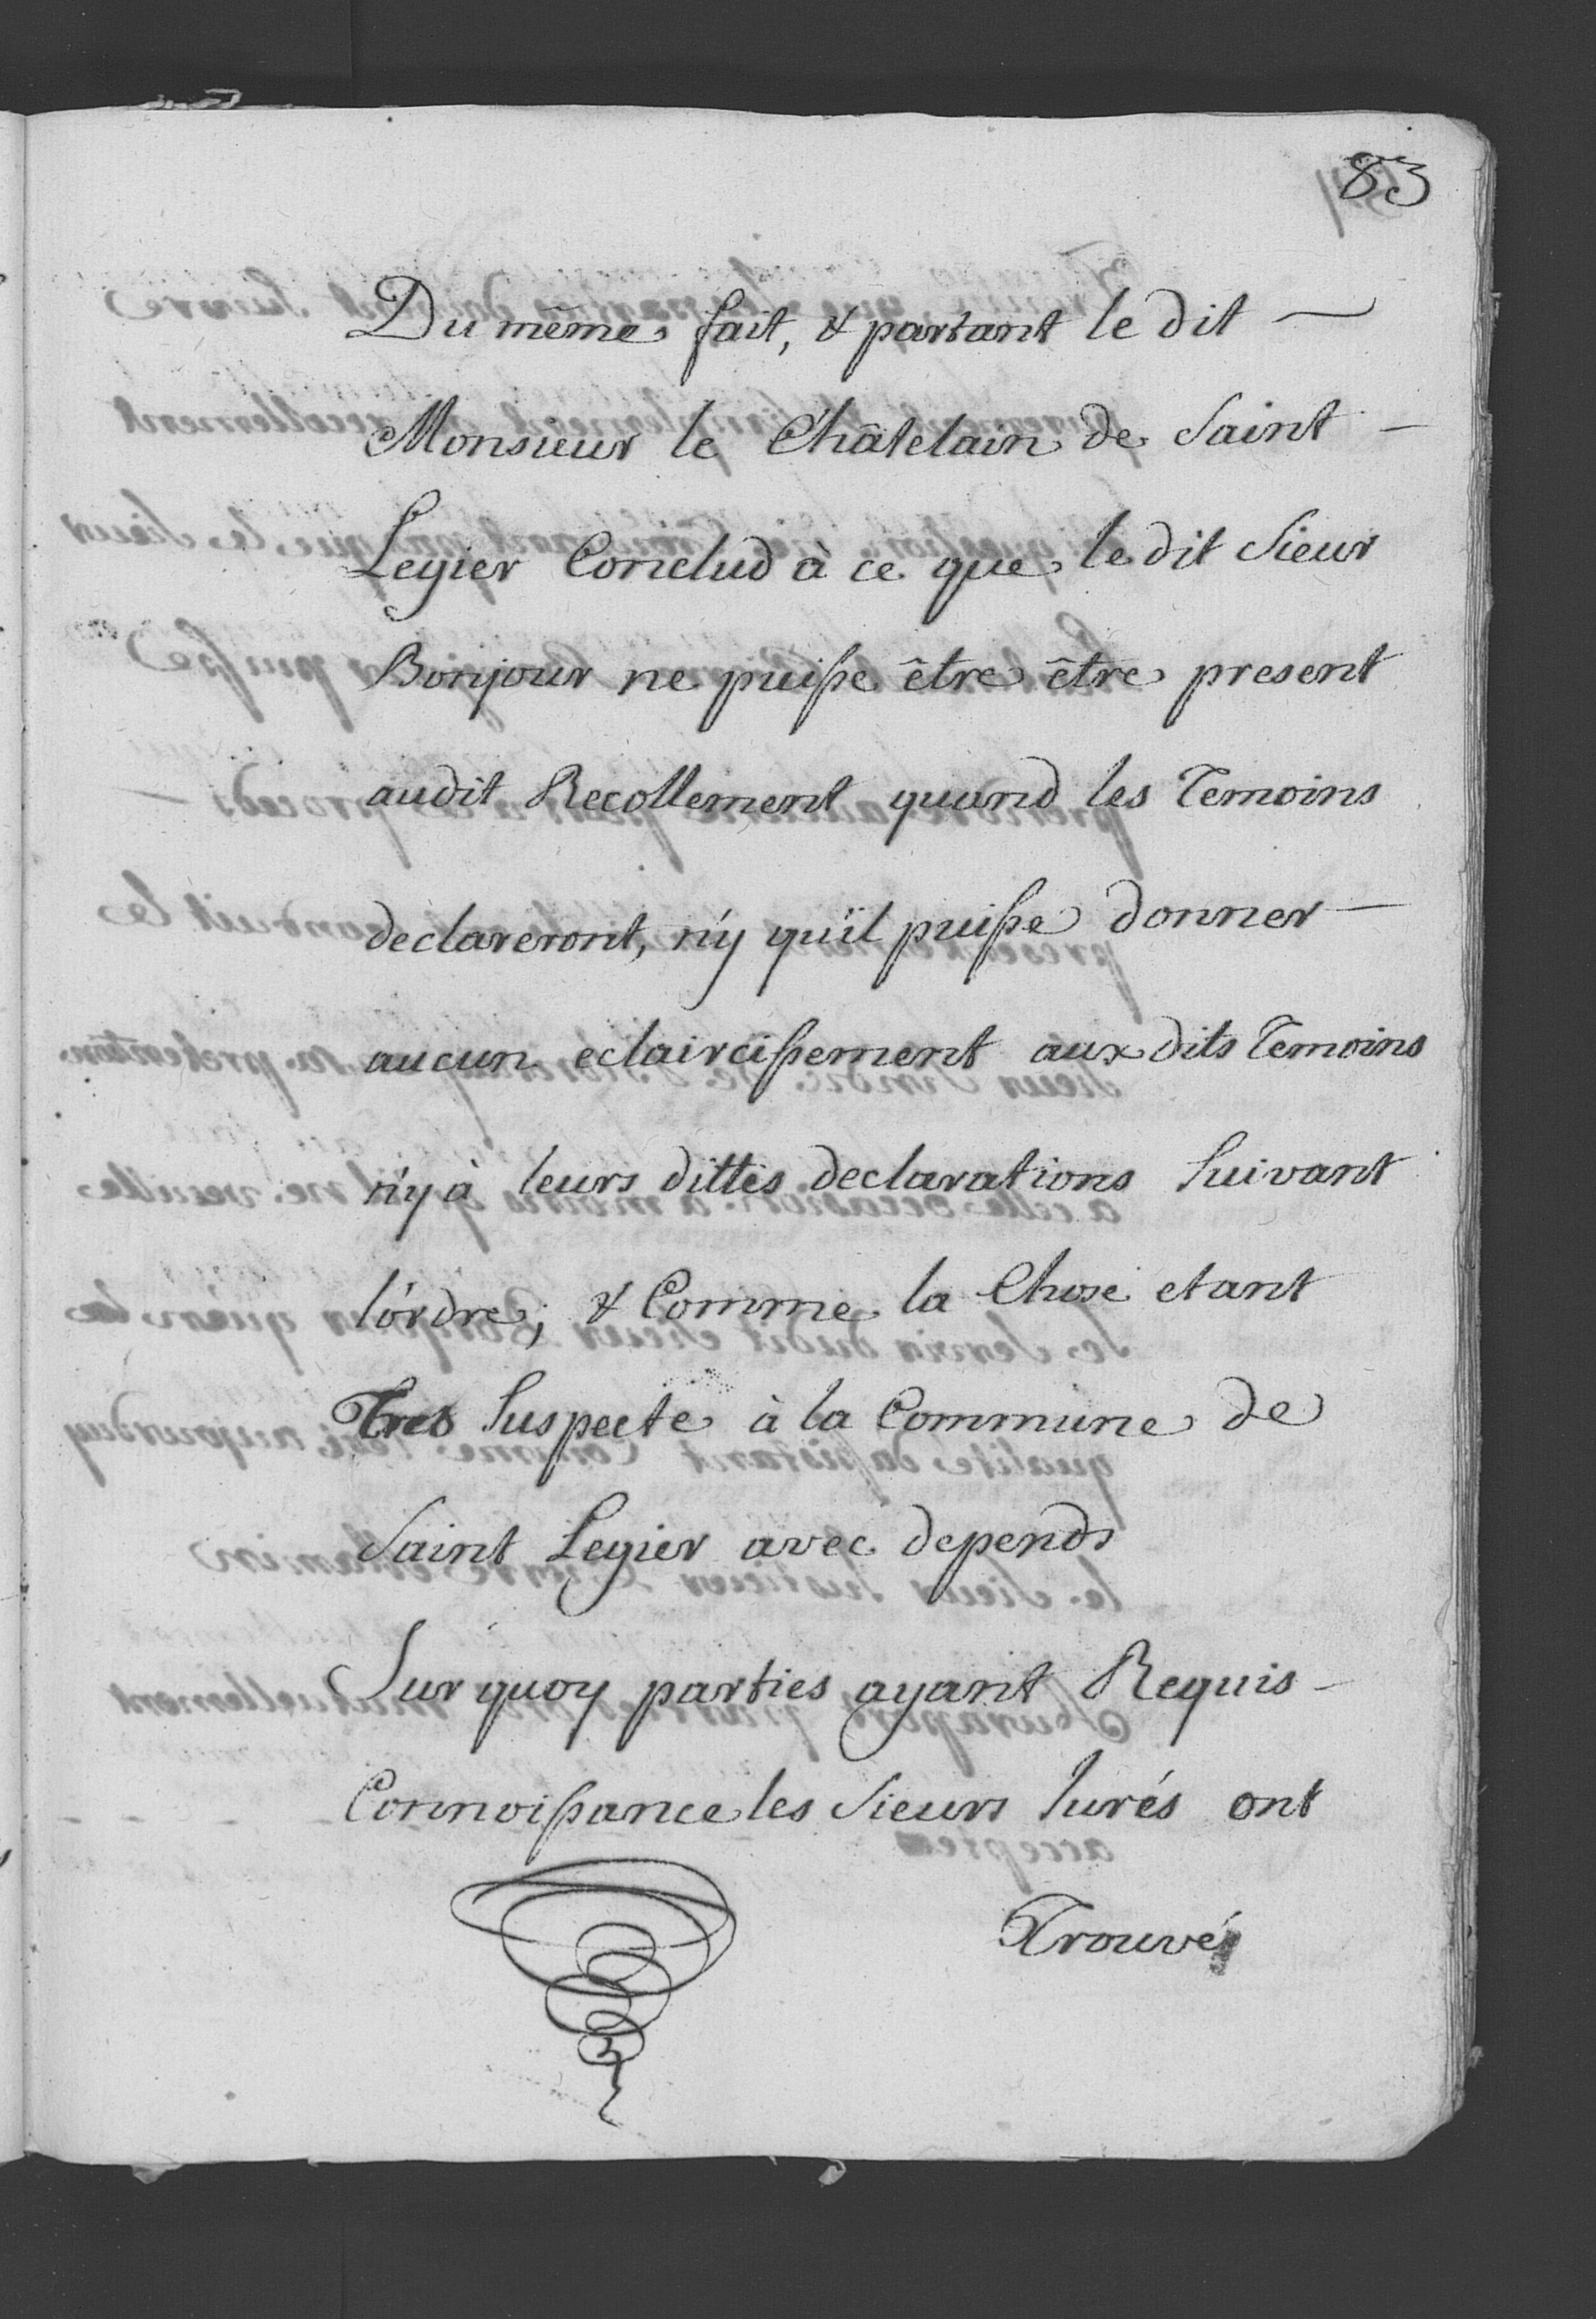 83
Du même fait, & partant le dit —
Monsieur le Châtelain de Saint —
Legier Conclud à ce que le dit Sieur
Bonjour ne puisse être être present
audit Recollement quand les Temoins
declareront, n'y qu'il puisse donner —
aucun eclaircissement aux dits Temoins
n'y à leurs dittes declarations Suivant
l'ordre; & Comme la Chose etant
Tres Suspecte à la Commune de
Saint Legier avec depends
Sur quoy parties ayant Requis —
Connoissance les Sieurs Jurés ont
Trouvé